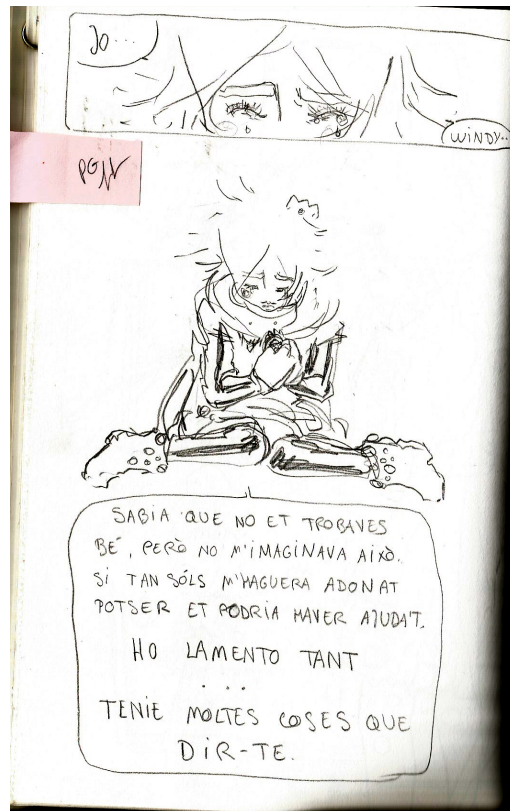 JO...
WINDY..
SABIA QUE NO ET TROBAVES
BÉ, PERÒ NO M'IMAGINAVA AIXÒ.
SI TAN SÓLS M'HAGUERA ADONAT
POTSER ET PODRIA HAVER AJUDAT.
HO LAMENTO TANT
...
TENIE MOLTES COSES QUE
DIR-TE.